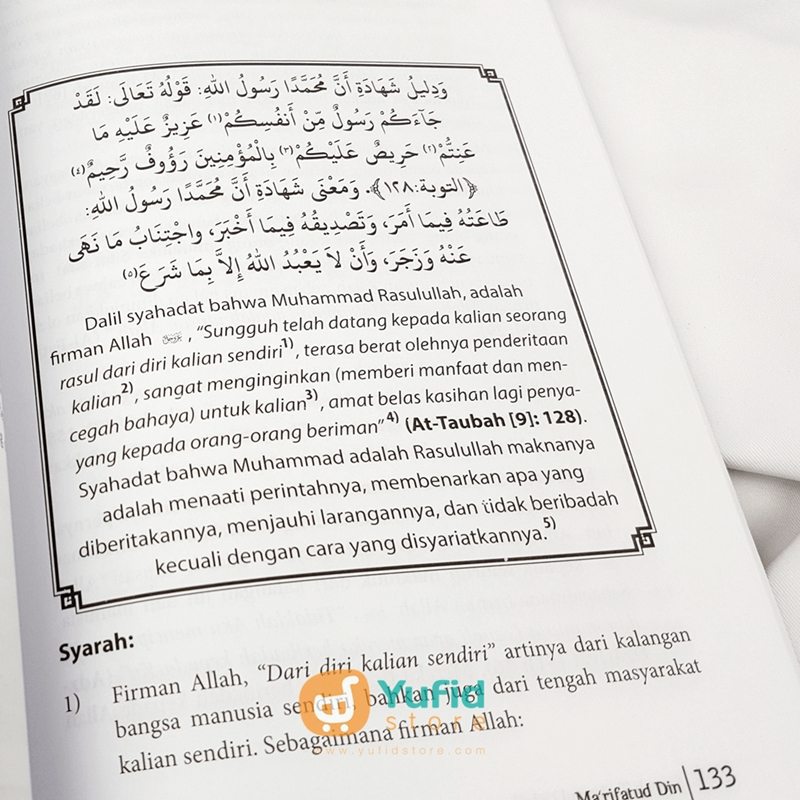 وَدِلِيلُ شَهَادَةِ أَنَّ مُحَمَّدًا رَسُولُ اللهِ: قَوْلُهُ تَعَالَى: لَقَدْ
جَآءَكُمْ رَسُولٌ مِّنْ أَنفُسِكُمْ(١) عَزِيزٌ عَلَيْهِ مَا
عَنتُّمْ(٢) حَرِيصٌ عَلَيْكُمْ(٣) بِالْمُؤْمِنِينَ رَؤُوفٌ رَّحِيمٌ(٤)
﴿التوبة:١٢٨﴾. وَمَعْنَى شَهَادَةِ أَنَّ مُحَمَّدًا رَسُولُ اللهِ:
طَاعَتُهُ فِيمَا أَمَرَ، وَتَصْدِيقُهُ فِيمَا أَخْبَرَ، واجْتِنَابُ مَا نَهَى
عَنْهُ وَزَجَرَ، وَأَنْ لاَ يَعْبُدُ اللهُ إِلاَّ بِمَا شَرَعَ(٥)
Dalil syahadat bahwa Muhammad Rasulullah, adalah
firman Allah , “Sungguh telah datang kepada kalian seorang
rasul dari diri kalian sendiri1), terasa berat olehnya penderitaan
kalian2), sangat menginginkan (memberi manfaat dan men-
cegah bahaya) untuk kalian3), amat belas kasihan lagi penya-
yang kepada orang-orang beriman”4) (At-Taubah [9]: 128).
Syahadat bahwa Muhammad adalah Rasulullah maknanya
adalah menaati perintahnya, membenarkan apa yang
diberitakannya, menjauhi larangannya, dan tidak beribadah
kecuali dengan cara yang disyariatkannya.5)
Syarah:
1) Firman Allah, “Dari diri kalian sendiri” artinya dari kalangan
bangsa manusia sendiri, bahkan juga dari tengah masyarakat
kalian sendiri. Sebagaimana firman Allah:
Yufid
store
www.yufidstore.com
Ma'rifatud Din | 133